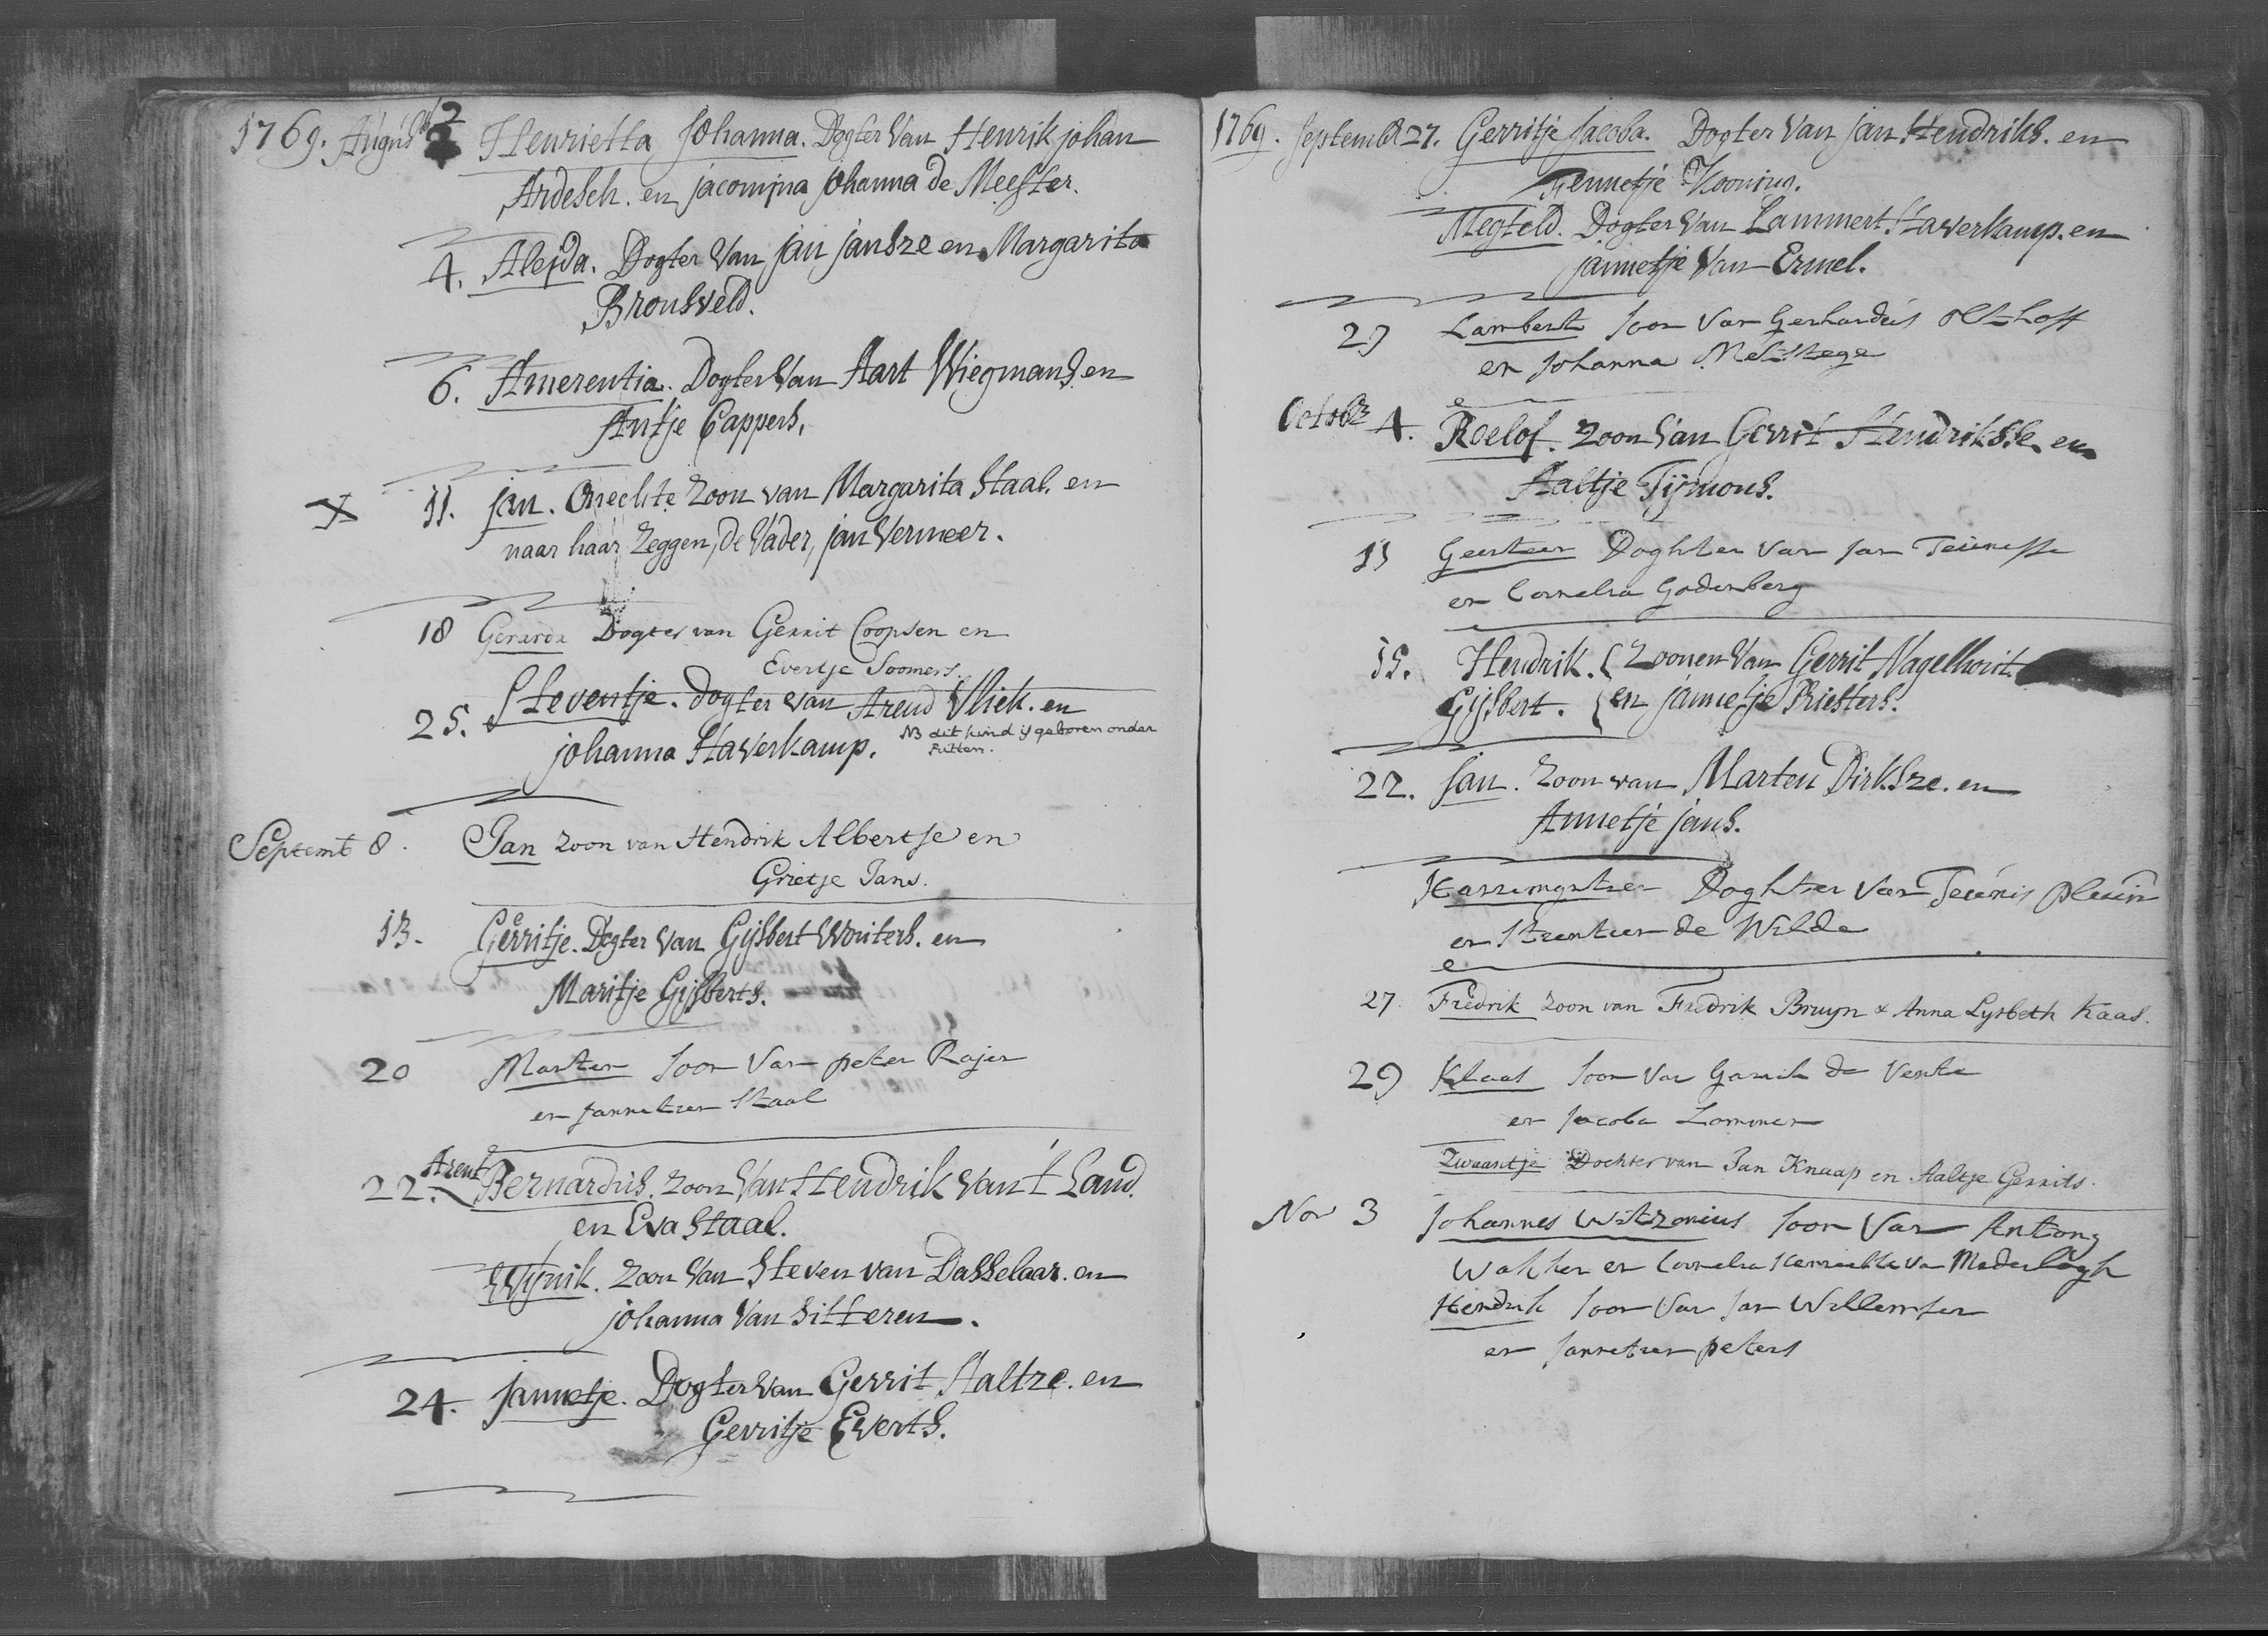 1769. August 2 Henrietta Johanna. Dogter Van Henrik johan
Ardesch. en jacomina johanna de Meester.
4. Aleida. Dogter Van jan jansze en Margarita
Bronsveld.
6. Amerentia. Dogter Van Aart Wiegmans. en
Antje Cappers.
x 11. jan. Onechte zoon van Margarita Staal. en
naar haar zeggen, de Vader, jan Vermeer.
18 Gerarda Dogter van Gerrit Coopsen en
Evertje Soomers.
25. Steventje. dogter van Arend Vliek. en
johanna Haverkamp. NB dit kind is geboren onder
Putten.
Septemb 8. Jan zoon van Hendrik Albertse en
Grietje Jans.
13. Gerritje. Dogter Van Gijsbert Wouters. en
Maritje Gijsberts.
20 Marten soon Van peter Rajer
en jannetien Staal
22. Arent Bernardus. zoon Van Hendrik van 't Land.
en Eva Staal.
Wijnik. zoon Van Steven van Dasselaar. en
johanna Van Sitteren.
24. jannetje. Dogter Van Gerrit Aaltze. en
Gerritje Everts.
1769. September 27. Gerritje Jacoba. Dogter Van jan Hendriks. en
Jennetje Kooning.
Megteld. Dogter Van Lammert Haverkamp. en
jannetje Van Ermel.
29 Lambert soon Van Gerhardus Olthoff
en Johanna Mestege
Octobr 4. Roelof. zoon Van Gerrit Hendriksse. en
Aaltje Tijmons.
11 Geertien Doghter Van Jan Teunesse
en Cornelia Godenberg
15. Hendrik. { zoonen Van Gerrit Nagelhout
Gijsbert. { en jannetje Priesters.
22. Jan. zoon van Marten Dirksze. en
Annetje jans.
Harmengien Doghter Van Teunis pluin
en Steentien de Wilde
27. Fredrik zoon van Fredrik Bruyn & Anna Lysbeth Kaas.
29 Klaas soon Van Garrit de Vente
en Jacoba Lommer
Zwaantje Dochter van Jan Knaap en Aaltje Gerrits.
Nov 3 Johannes Witzonius soon Van Antony
Wakker en Cornelia Henriette Van Mederlagh
Hendrik soon Van Jan Willemsen
en Jannetien peters